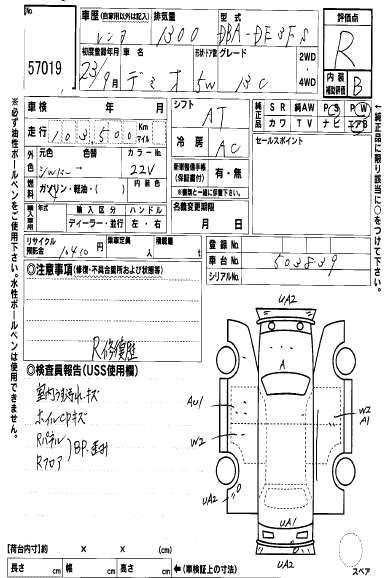 No.
57019
車歴 (自家用以外は記入)
レンタ
排気量
1300
型式
DBA-DE3FS
評価点
R
初度登録年月
23/9月
車名
デミオ
形状・ドア数
5W
グレード
13C
2WD
4WD
内装
補助評価
B
車検 年 月
走行 103,500 Km マイル
シフト
AT
冷房
AC
純正品
SR 純AW PS PW
カワ TV ナビ エアB
セールスポイント
外色
元色 色替
シルバー
カラーNo.
22V
燃料
ガソリン・軽油・( )
内装色
輸入車
輸入区分 ハンドル
ディーラー・並行 左・右
新車整備手帳
(保証書付)
有・無
名義変更期限
月 日
リサイクル
預託金
10410円
乗車定員
人
積載量
t
登録No.
車台No.
503839
シリアルNo.
◎注意事項 (修復・不具合箇所および状態等)
R修復歴
◎検査員報告(USS使用欄)
室内うす汚れ・キズ
ホイルCPキズ
Rパネル
Rフロア
BP・歪み
UA2
A
AU1
W2
W2
A1
UA2
UA1
UA2
スペア
※必ず油性ボールペンをご使用下さい。水性ボールペンは使用できません。
純正品に限り該当に○をして下さい。
【荷台内寸】約 × × (cm)
長さ cm 幅 cm 高さ cm ←(車検証上の寸法)